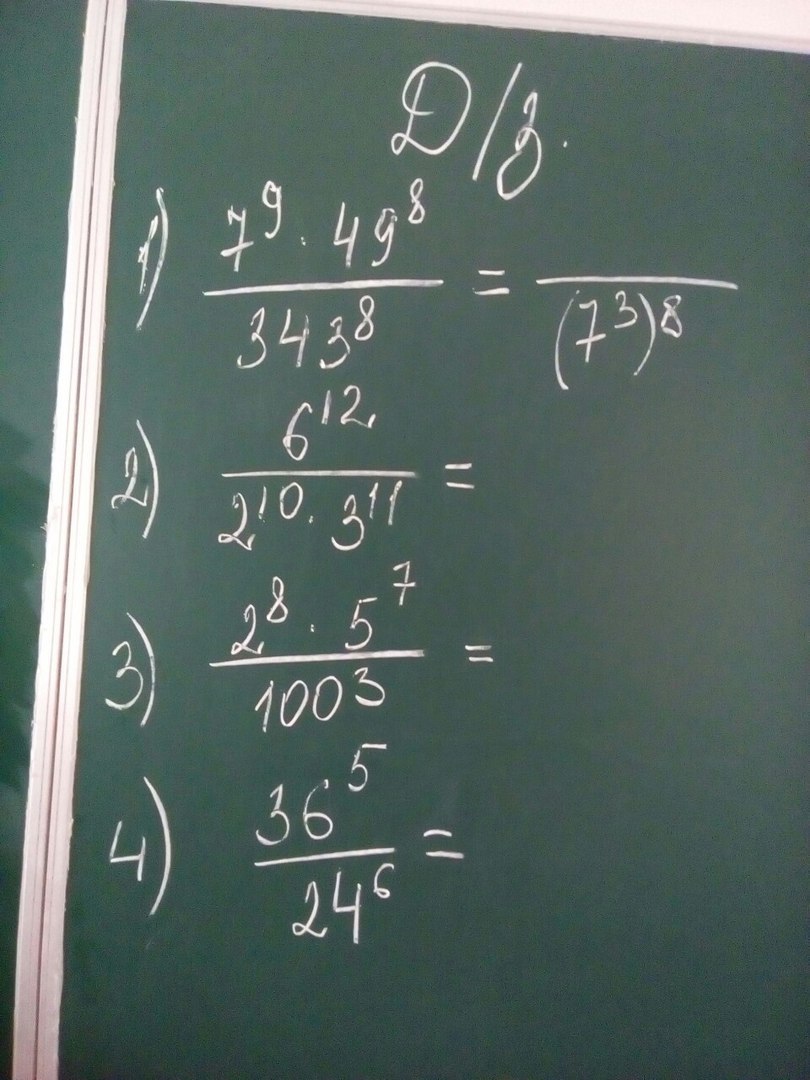 Д/з.
1) 7⁹ · 49⁸ / 343⁸ = / (7³)⁸
2) 6¹² / 2¹⁰ · 3¹¹ =
3) 2⁸ · 5⁷ / 100³ =
4) 36⁵ / 24⁶ =